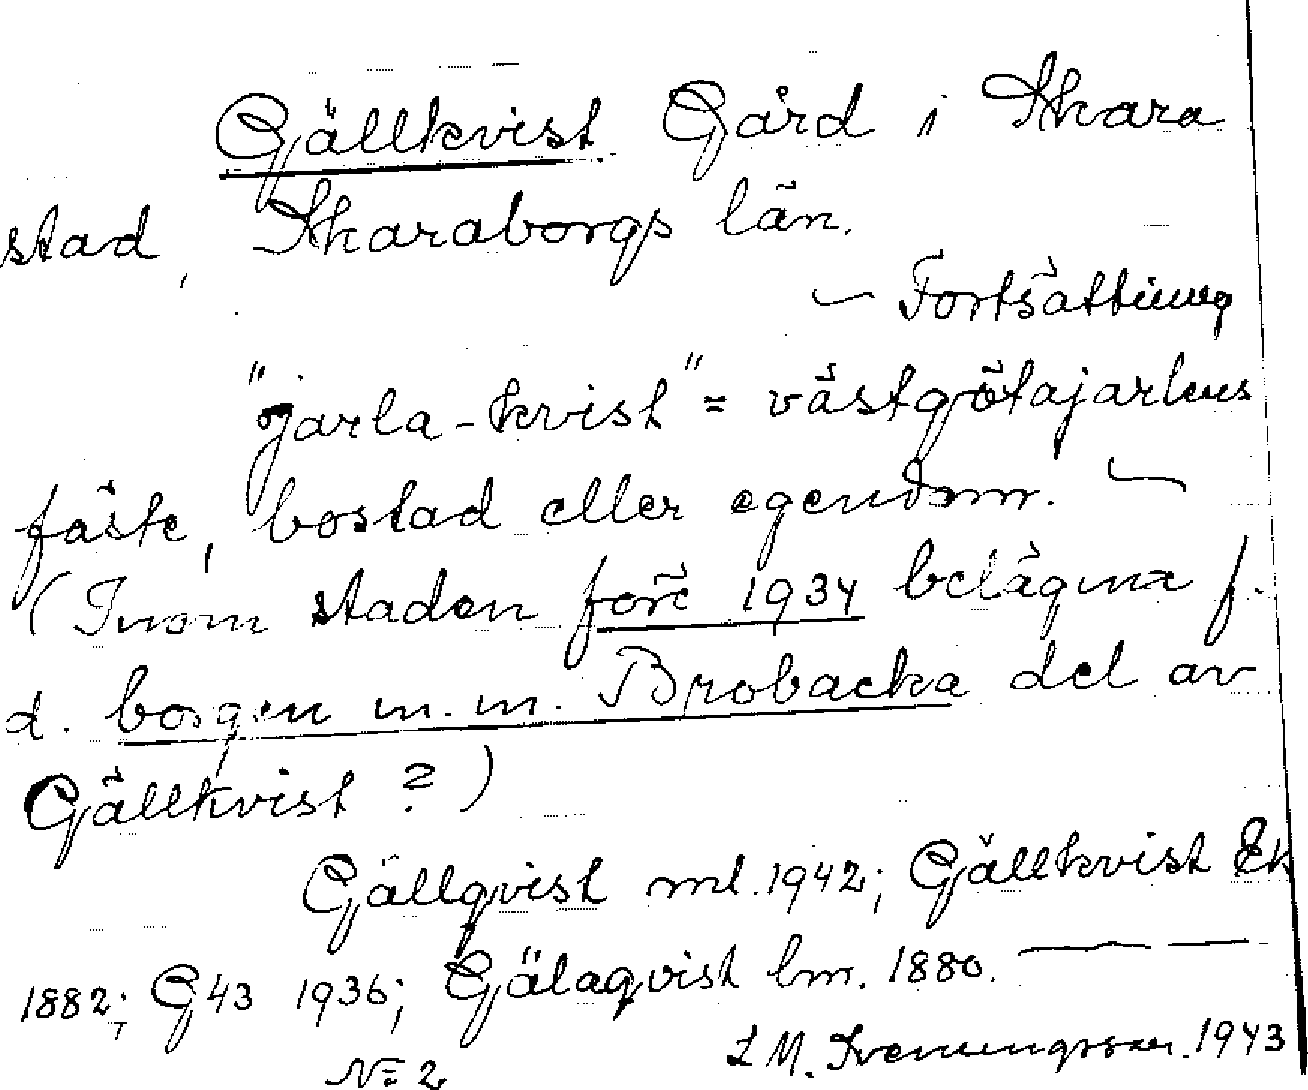 Gällkvist Gård i Skara
stad, Skaraborgs län.
– Fortsättning
"jarla-kvist" = västgötajarlens
fäste, bostad eller egendom. –
(Inom staden före 1934 belägna f.
d. borgen m.m. Brobacka del av
Gällkvist ?)
Gällqvist ml. 1942; Gällkvist Ek
1882; G43 1936; Gälaqvist lm. 1880. –
L M. Svenungsson. 1943
No 2